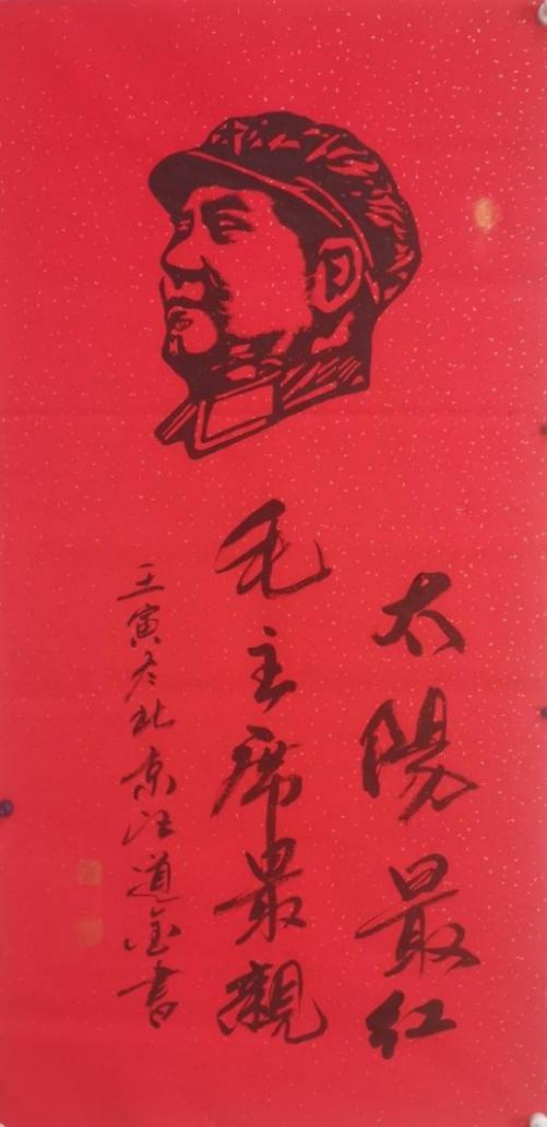 太陽最红
毛主席最親
壬寅冬北京汪道金書